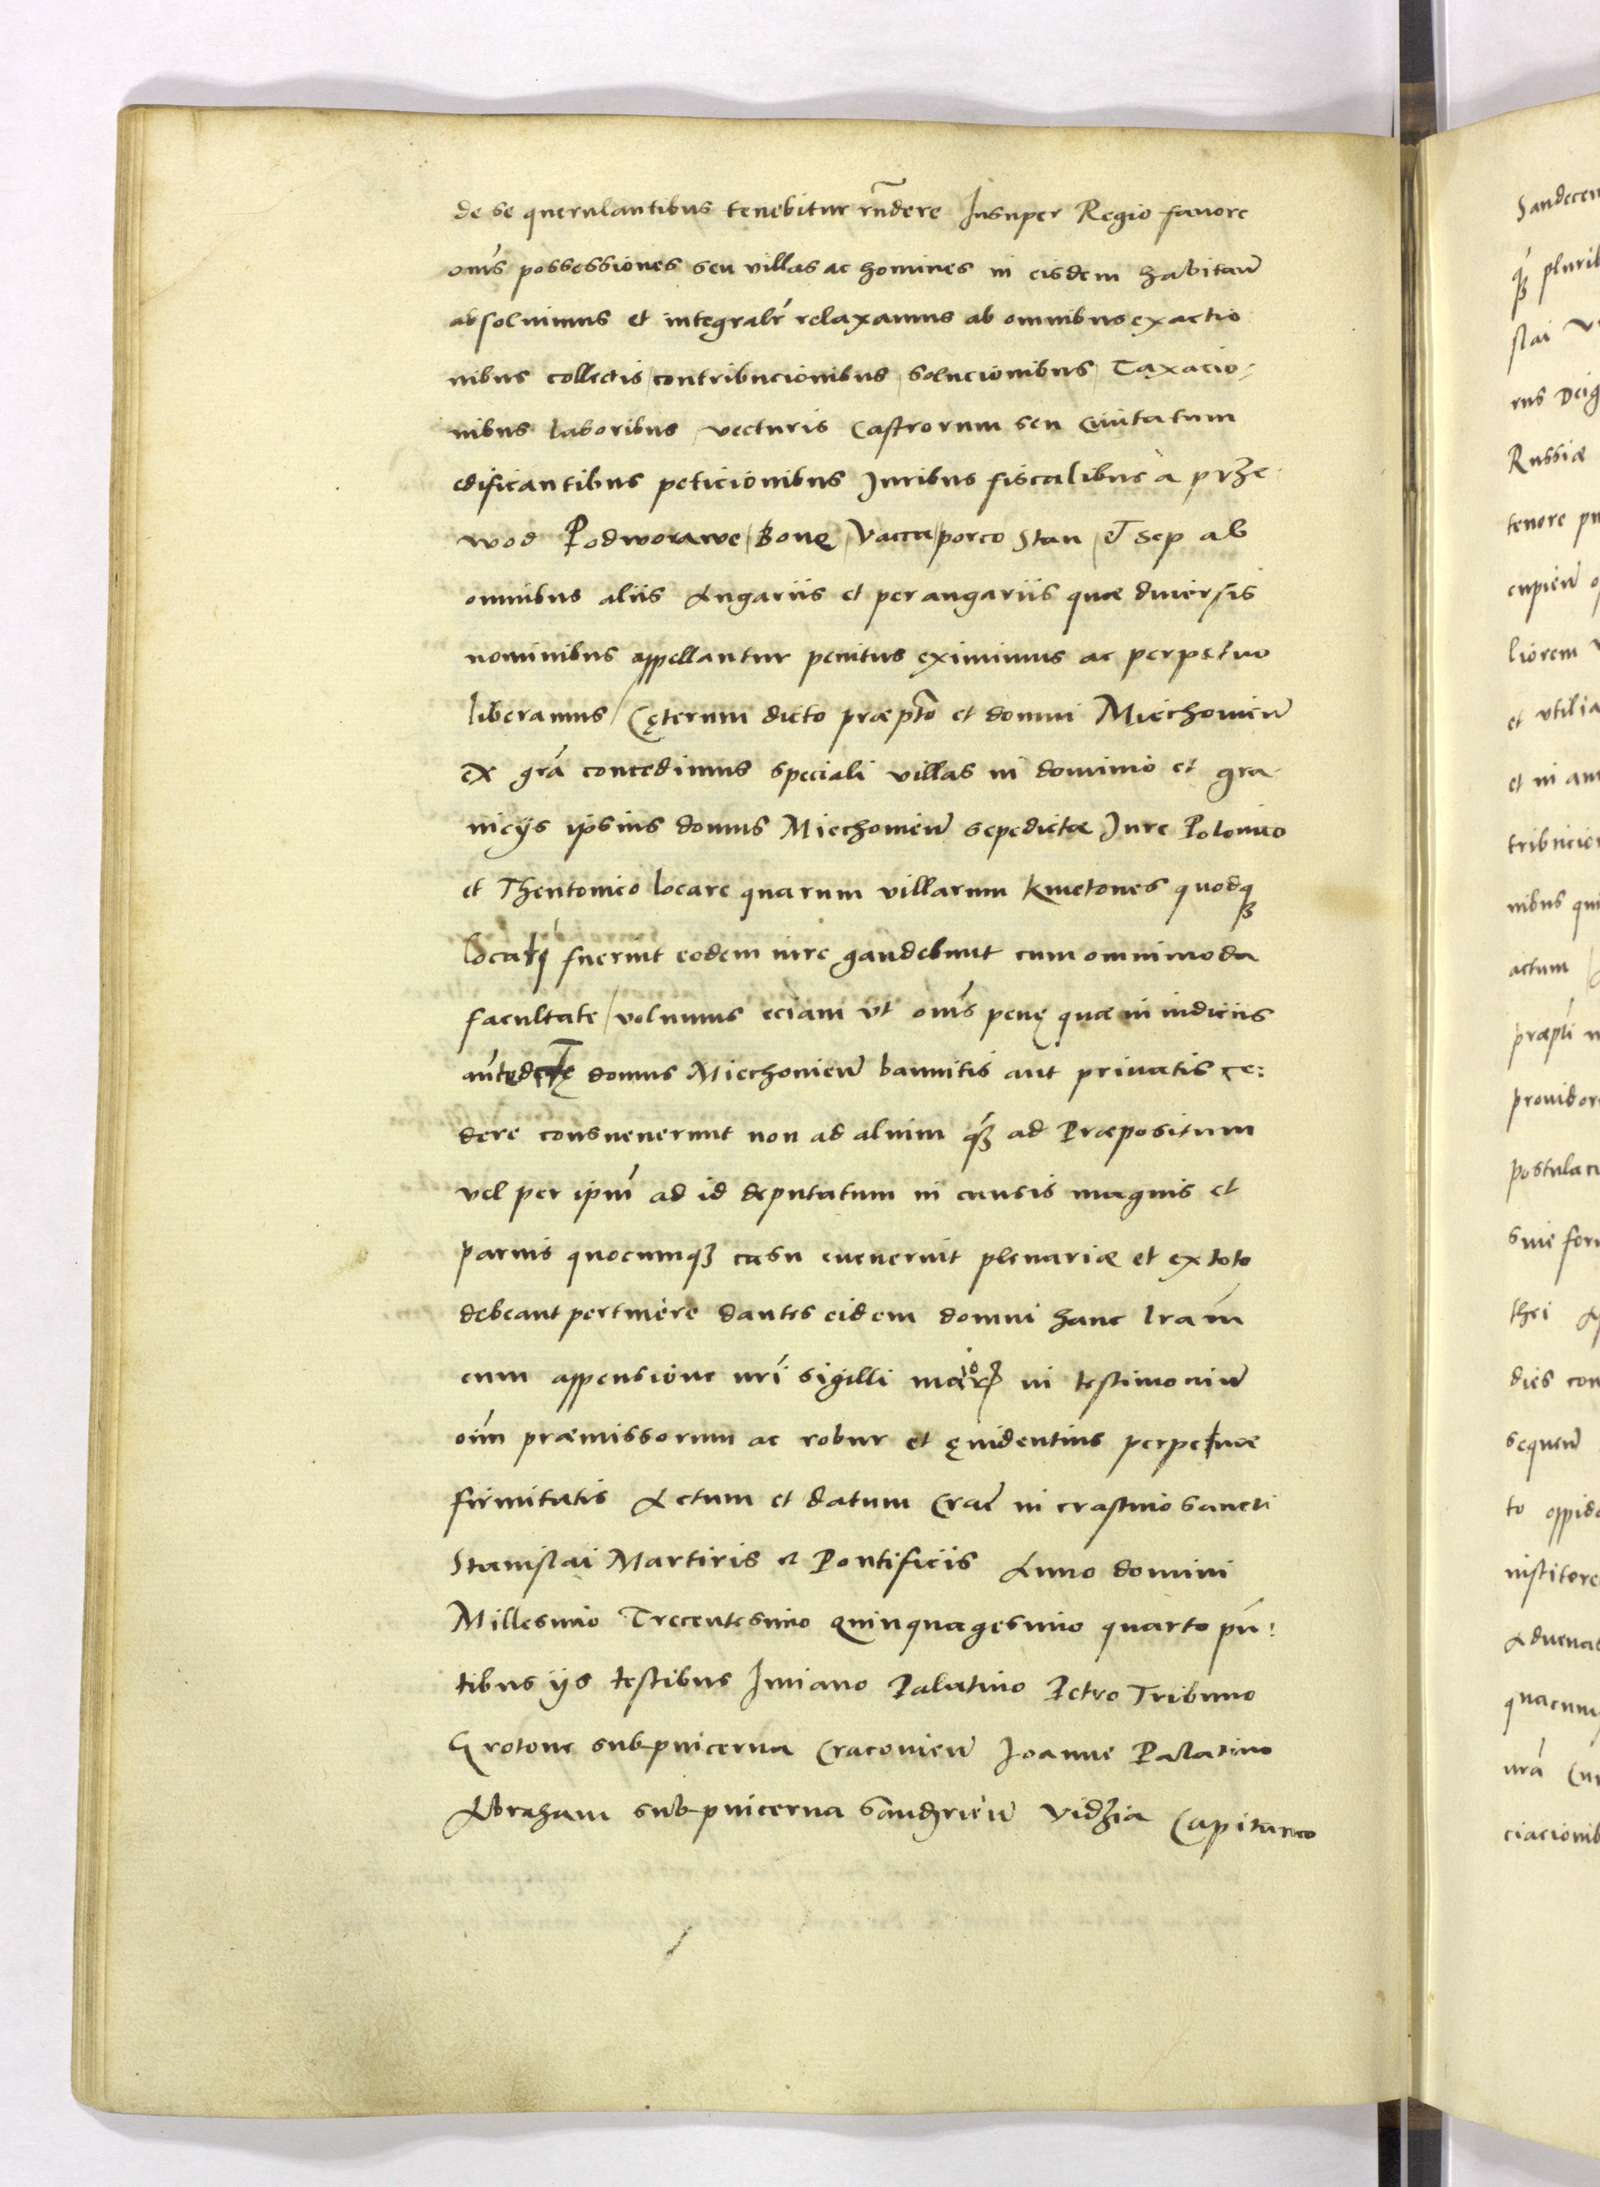 de se querulantibus tenebitur rñdere Insuper Regio fauore
om̃s possessiones seu villas ac homines in eisdem habitañ
absoluimus et integralr̃ relaxamus ab omnibus exactio
nibus collectis / contribucionibus / solucionibus / Taxacio:
nibus laboribus / vecturis Castrorum seu Ciuitatum
edificantibus peticionibus Iuribus fiscalibus à prze
wod Podworawe / Boue / Vacca / porco Stan / Et sep ab
omnibus aliis Angariis et perangariis quæ diuersis
nominibus appellantur penitus eximimus ac perpetuo
liberamus / Cęterum dicto præpto et domui Miechouieñ
ex grã concedimus speciali villas in dominio et gra
nicijs ipsius domus Miechouieñ sepedictæ Iure Polonico
et Theutonico locare quarum villarum kmetones quodqȝ
locati fuerint eodem iure gaudebunt cum omnimoda
facultate / volumus eciam vt om̃s penę quæ in iudiciis
antedctę domus Miechouieñ bannitis aut priuatis ce:
dere consueuerunt non ad alium qȝ ad Præpositum
vel per ipm̃ ad id deputatum in causis magnis et
paruis quocumqȝ casu euenerint plenariæ et ex toto
debeant pertinere dantes eidem domui hanc lram̃
cum appensione nri sigilli maioꝝ in testimoniũ
oim̃ præmissorum ac robur et ęuidentius perpetuæ
firmitatis Actum et datum Crac̃ in crastino Sancti
Stanislai Martiris et Pontificiis Anno domini
Millesimo Trecentesimo quinquagesimo quarto pñ:
tibus ijs testibus Imiano Palatino Petro Tribuno
Grotone subpincerna Cracouieñ Joanne Palatino
Abraham subpincerna Sandzrieñ Vidzia Capitaneo
Sandecen
qȝ plurib
slai
rus Deig
Russiæ
tenore
cupieñ
liorem
et vtilia
et in am
tribucion
nibus qui
actum
præpti
prouidor
postulaci
siue for
thei
dies con
sequeñ
to oppido
institore
Aduenas
quacumq
nrã
ciacionib